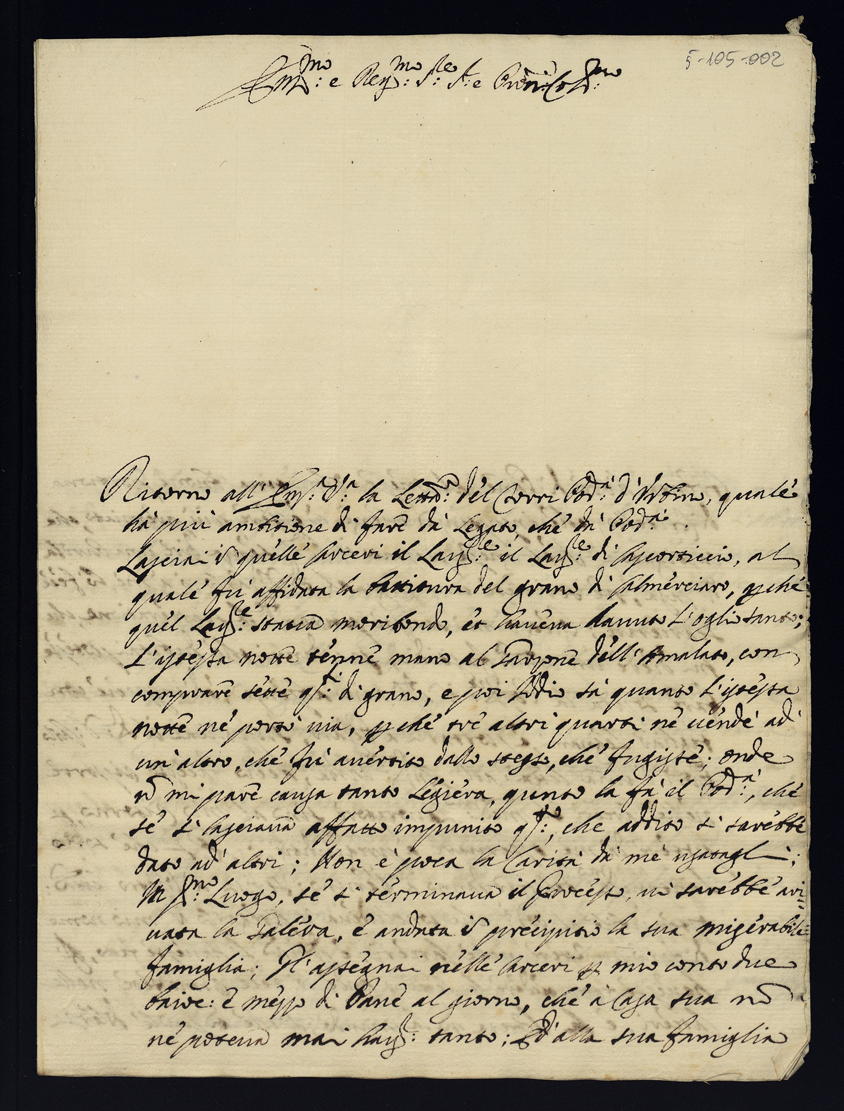 5-105-002
Em:mo e Reu:mo Sr.e Sr. e Pron: Col:mo
Ritorno all'Em:a V:a la Lett:a del Corri Pod:à d'Urbino, quale
hà più ambitione di fare dà Legato che dà Pod:à
Lasciai i quelle carceri il Lau:re il Lau:re di Caporticcio, al
quale fù affidata la battitura del grano di Salmerciaro, p̱chè
quel Lau:re staua moribondo, et haueua hauuto l'oglio santo;
L'istessa notte tenne mano al Garzone dell'Amalato, con
comprare sette q:ti di grano, e poi Iddio sà quanto l'istessa
notte ne portò uia, p̱chè trè altri quarti ne uendè ad'
un'altro, che fù auertito dallo stesso, che fugisse; onde
nō mi pare causa tanto legiera, quanto la fà il Pod:à, che
se si lasciaua affatto impunito q:to, che addito si sarebbe
dato ad' altri; Non è poca la Carità dà me usatagli;
In p:mo Luogo, se si terminaua il Processo, ui sarebbe arri=
uata la Galera, e andata i precipitio la sua miserabile
famiglia; Gl'assegnai nelle Carceri p̱ mio conto due
baioc: e mezzo di Pane al giorno, che à Casa sua nō
ne poteua mai hau: tanto; Ed alla sua famiglia